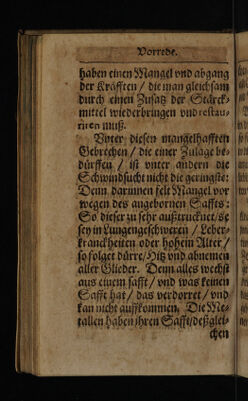 Vorrede.
haben einen Mangel vnd abgang
der Kräfften / die man gleichsam
durch einen Zusatz der Stärck-
mittel wiederbringen vnd restau-
riren muß.
Vnter diesen mangelhafften
Gebrechen / die einer Zulage be-
dürffen / ist vnter andern die
Schwindsucht nicht die geringste:
Denn darinnen felt Mangel vor
wegen des angebornen Saffts:
So dieser zu sehr außtrucknet / es
sey in Lungengeschweren / Leber-
kranckheiten oder hohem Alter /
so folget dürre / Hitz vnd abnemen
aller Glieder. Denn alles wechst
aus einem safft / vnd was keinen
Safft hat / das verdorret / vnd
kan nicht auffkommen. Die Me-
tallen haben jhren Safft / deßglei-
chen